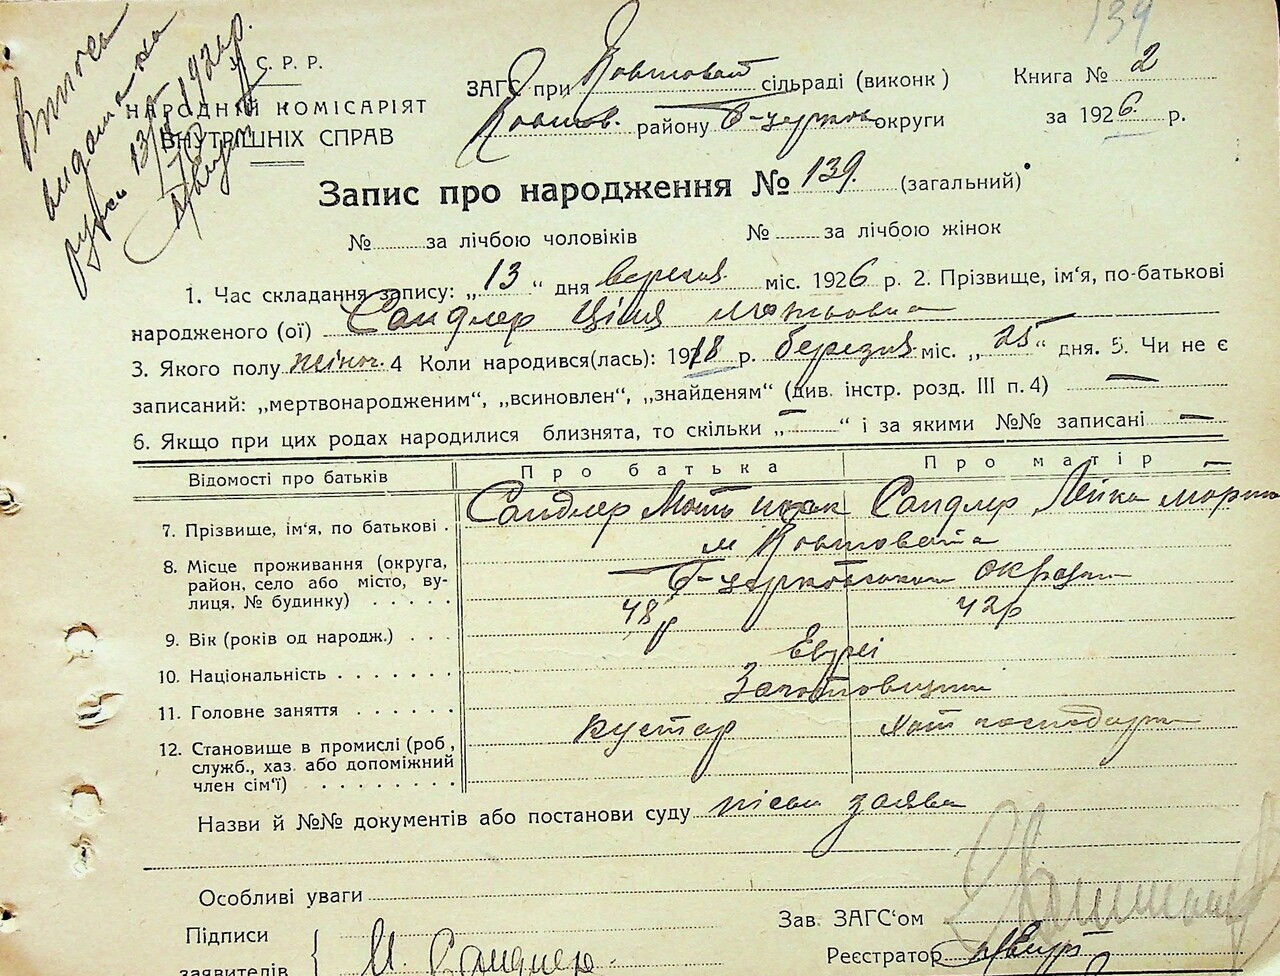 139
Витяг
видано на
руки 13/III 1926 р.
У. С. Р. Р.
НАРОДНІЙ КОМІСАРІЯТ
ВНУТРІШНІХ СПРАВ
ЗАГС при Ковшоват сільраді (виконк)
Ковшов. району Б-церков округи
Книга № 2
за 1926 р.
Запис про народження № 139. (загальний)
№ за лічбою чоловіків № за лічбою жінок
1. Час складання запису: „13“ дня березня міс. 1926 р. 2. Прізвище, ім‘я, по-батькові
народженого (ої) Сандлер Ціля
3. Якого полу жіноч. 4 Коли народився(лась): 1918 р. березня міс. „25“ дня. 5. Чи не є
записаний: „мертвонародженим“, „всиновлен“, „знайденям“ (див. інстр. розд. III п. 4) —
6. Якщо при цих родах народилися близнята, то скільки „—“ і за якими №№ записані —
Відомості про батьків Про батька Про матір
7. Прізвище, ім‘я, по батькові . Сандлер Мот Сандлер Лейка
8. Місце проживання (округа, м Ковшовата
район, село або місто, ву- Б-церковської округи
лиця, № будинку) . . . . .
9. Вік (років од народж.) . . . 48 р 42 р
10. Національність . . . . . . . Євреі
11. Головне заняття . . . . . . Заготовщики
12. Становище в промислі (роб, кустар хат господарка
служб., хаз. або допоміжний
член сім‘ї) . . . . . . . . .
Назви й №№ документів або постанови суду пісьм заява
Особливі уваги
Підписи
заявителів { Сандлер
Зав. ЗАГС‘ом
Реєстратор